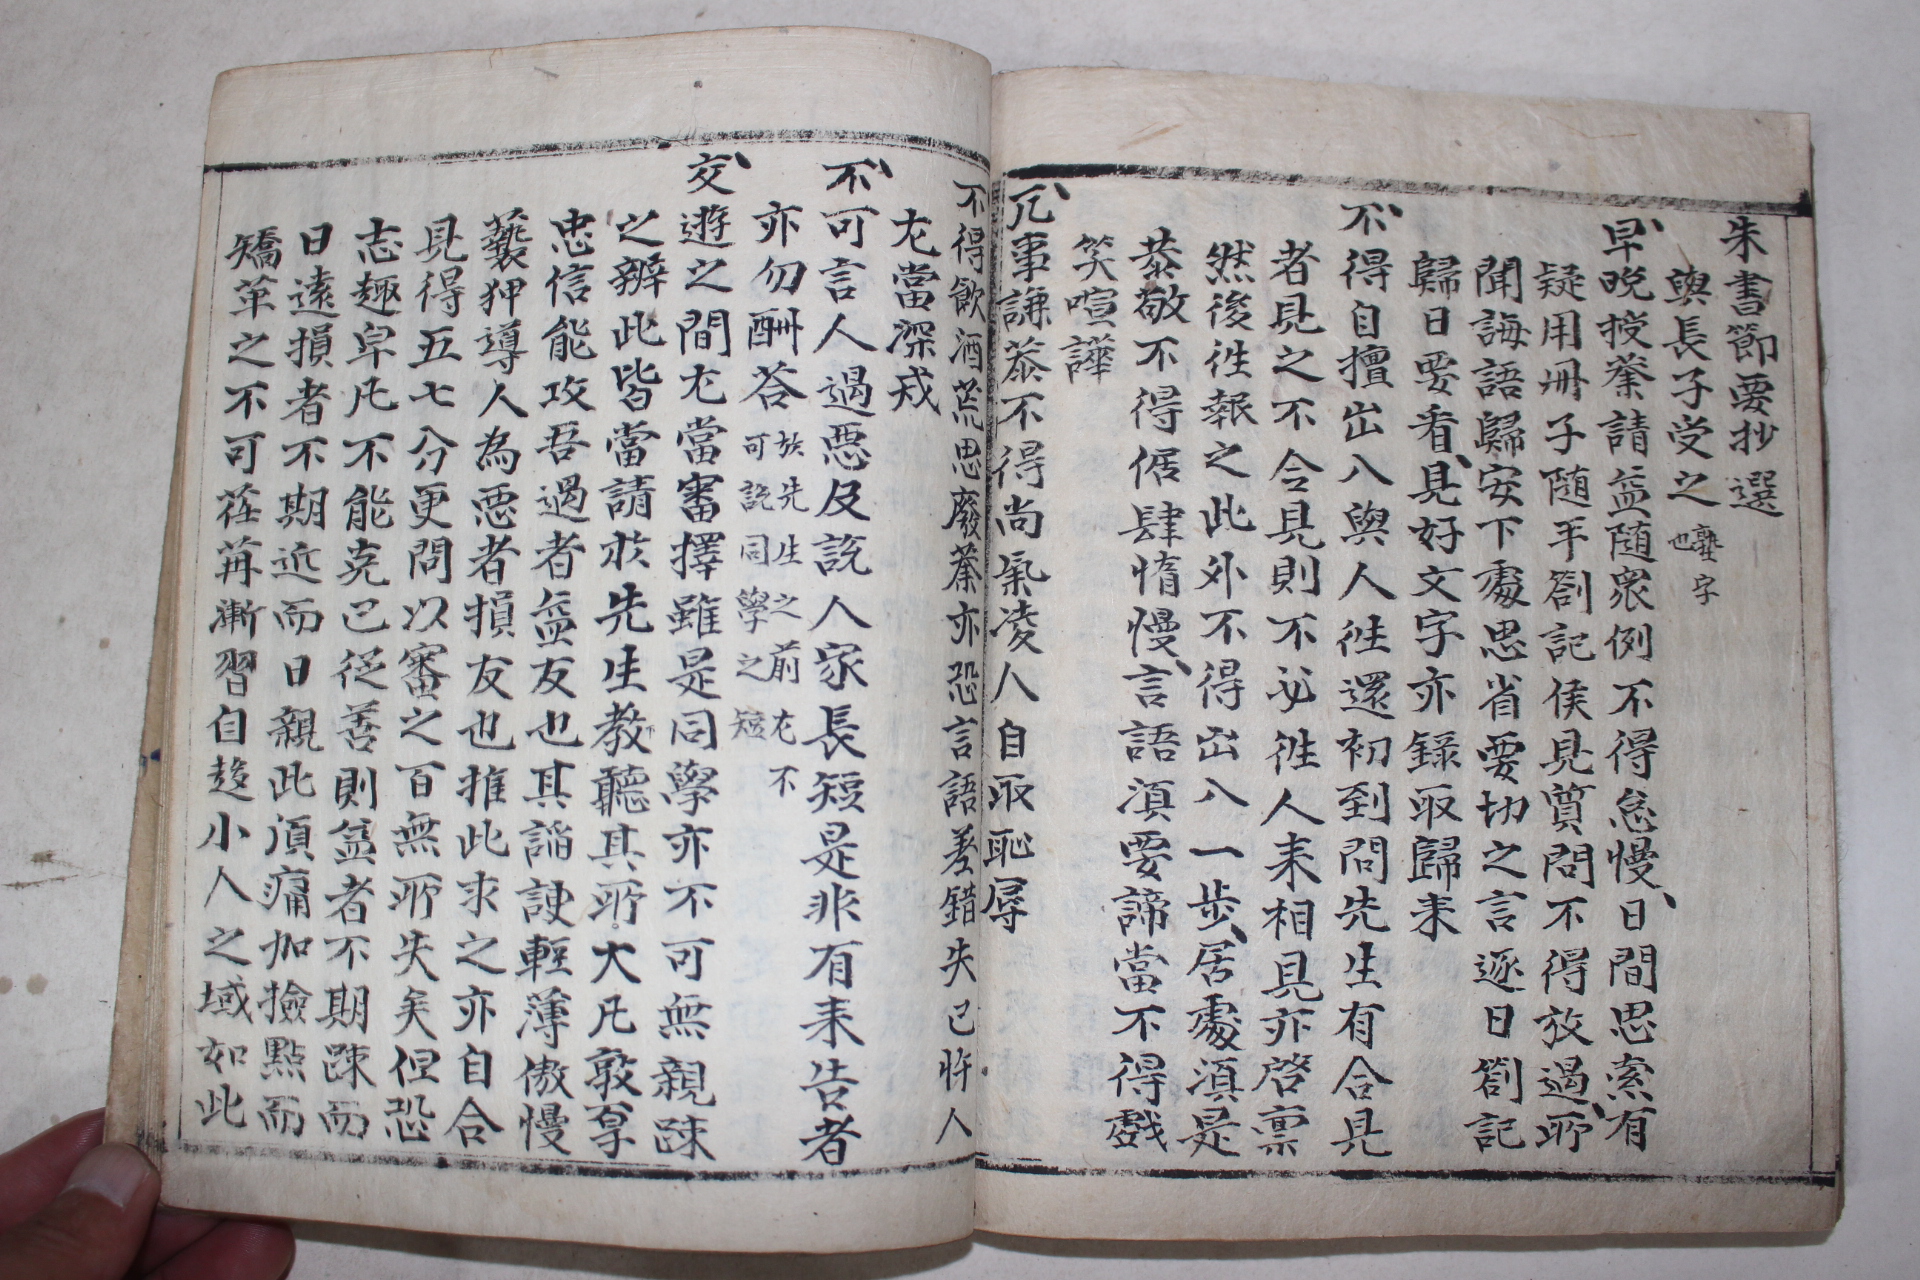 朱書節要抄選
與長子受之 塾字也
早晩授業請益隨衆例不得怠慢日間思索有
疑用冊子隨手箚記侯見質問不得放過所
聞誨語歸安下處思省要切之言逐日箚記
歸日要看見好文字亦錄取歸来
不得自擅出入與人徃還初到問先生有合見
者見之不合見則不必徃人来相見亦啓稟
然後徃報之此外不得出入一步居處湏是
恭敬不得倨肆惰慢言語湏要諦當不得戲
笑喧譁
凡事謙恭不得尚氣凌人自取恥辱
不得飮酒荒思廢業亦恐言語差錯失己忤人
尤當深戒
不可言人過惡及說人家長短是非有来告者
亦勿酬荅 於先生之前尤不可說同學之短
交遊之間尤當審擇雖是同學亦不可無親踈
之辨此皆當請於先生教聽其所大凡敦厚
忠信能攻吾過者益友也其諂諛輕薄傲慢
褻狎導人為惡者損友也推此求之亦自合
見得五七分更問以審之百無所失矣但恐
志趣卑凡不能克己從善則益者不期踈而
日遠損者不期近而日親此湏痛加撿點而
矯革之不可荏苒漸習自趍小人之域如此